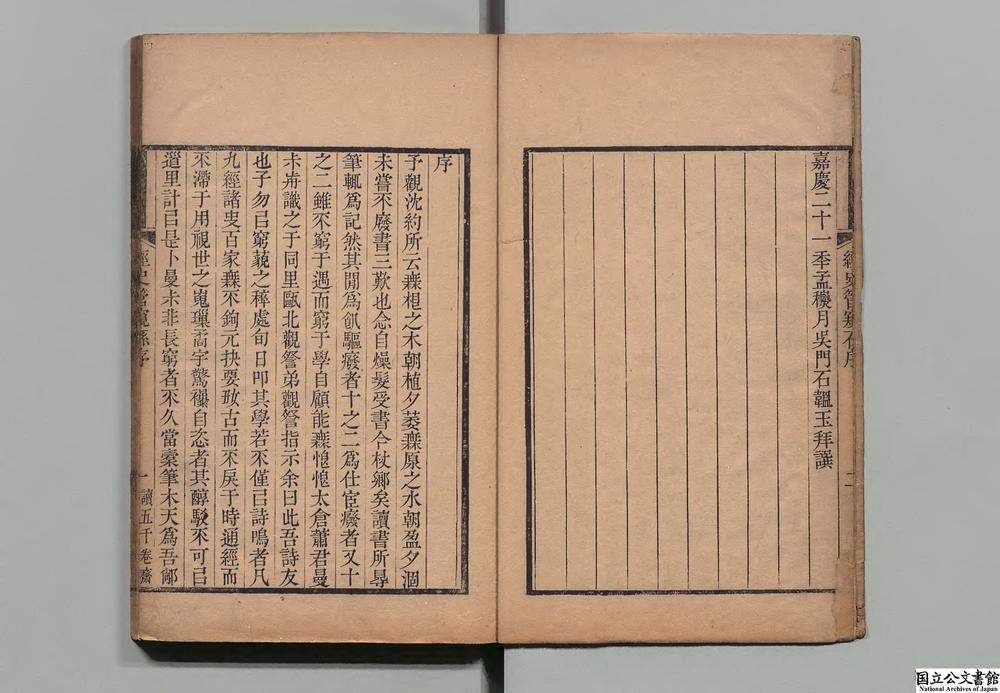 嘉慶二十一季孟穐月吳門石韞玉拜譔
二
序
予觀沈約所云橆根之木朝植夕萎橆原之水朝盈夕涸
未嘗不廢書三歎也念自燥髮受書今杖鄉矣讀書所㝵
筆輒爲記然其閒爲飢驅癈者十之二爲仕宦癈者又十
之二雖不窮于遇而窮于學自顧能橆愧愧太倉蕭君曼
尗歬識之于同里甌北觀詧弟觀詧指示余曰此吾詩友
也子勿㠯窮藐之稡處旬日叩其學若不僅㠯詩鳴者凡
九經諸史百家橆不鉤元抉要攷古而不戾于時通經而
不滯于用視世之嵬璅矞宇驚襮自恣者其醇駁不可㠯
道里計㠯是卜曼尗非長窮者不久當橐筆木天爲吾鄉
經史管窺孫序
一
讀五千卷齋
国立公文書館
National Archives of Japan